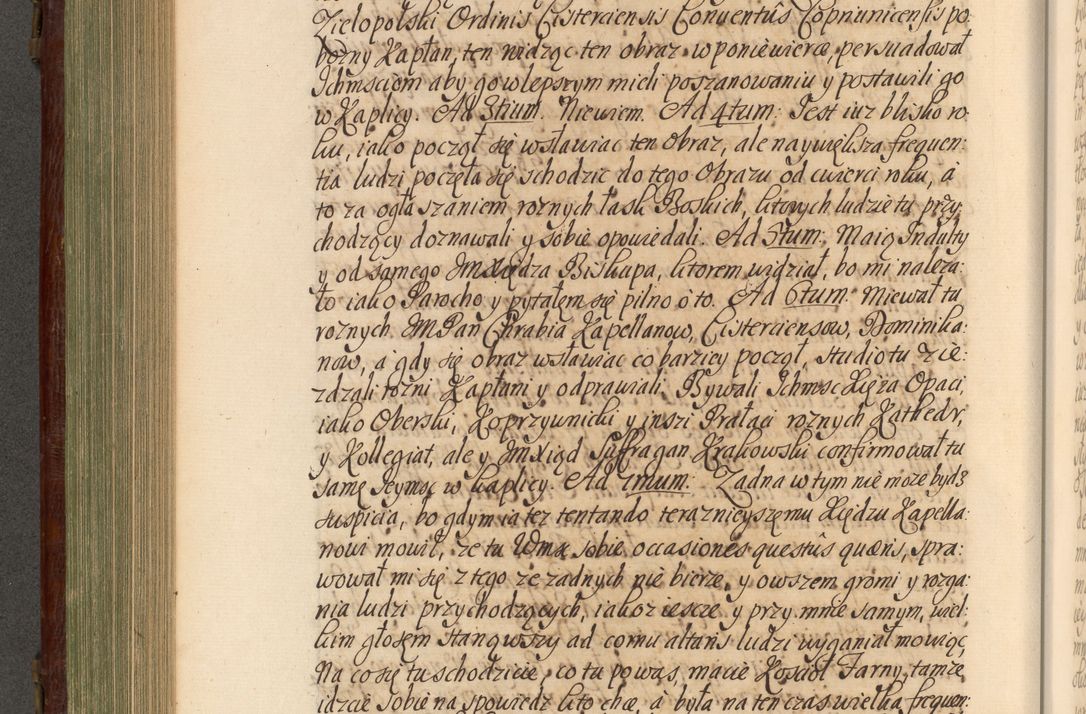 Zielopolski Ordinis Cisterciensis Conventûs Copriunicensis po
bozny Kapłan, ten widząc ten obraz w poniewierce, persuadował
Ichmsciom aby go w lepszym mieli poszanowaniu y postawili go
w Kaplicy. Ad 3tium. Niewiem. Ad 4tum: Jest iuz blisko ro-
ku, iako począł się wsławiac ten Obraz, ale naywiększa frequen:
tia ludzi poczęła się schodzic do tego Obrazu od cwierci roku, á
to za ogłaszaniem roznych łask Boskich, ktorych ludzie tu przy
chodzący doznawali y sobie opowiedali. Ad 5tum: Maią Indulty
y od samego JmXiędza Biskupa, ktorem widział, bo mi naleza:
ło iako Parocho y pytałem się pilno ó to. Ad 6tum: Miewał tu
roznych JMPan Chrabia Kapellanow, Cisterciensow, Dominika:
now, a gdy się obraz wsławiac co barziey począł, studio tu zie:
zdzali rozni Kapłani y odprawiali. Bywali Ichmsc Xięża Opaci,
iako Oberski, Koprzywnicki y inszi Prałaci roznych Kathedr,
y Kollegiat, ale y JmXiądz Suffragan Krakowski confirmował tu
samę Jeymsc w kaplicy. Ad 7mum: Zadna w tym nie może bydź
suspicia, bo gdym ia tez tentando teraznieyszemu Xiędzu Kapella:
nowi mowił, ze tu Wmsc sobie occasiones questûs quæris, spra:
wował mi się z tego ze zadnych nie bierze, y owszem gromi y rozga:
nia ludzi przychodzących, iakoz ieszcze y przy mnie samym, wiel:
kim głosem stanąwszy ad cornu altaris ludzi wyganiał mowiąc,
Na co się tu schodzicie, co tu po was, macie Kosciół Farny, tamże
idzcie sobie na spowiedz kto chce, á była na ten czas wielka frequen: